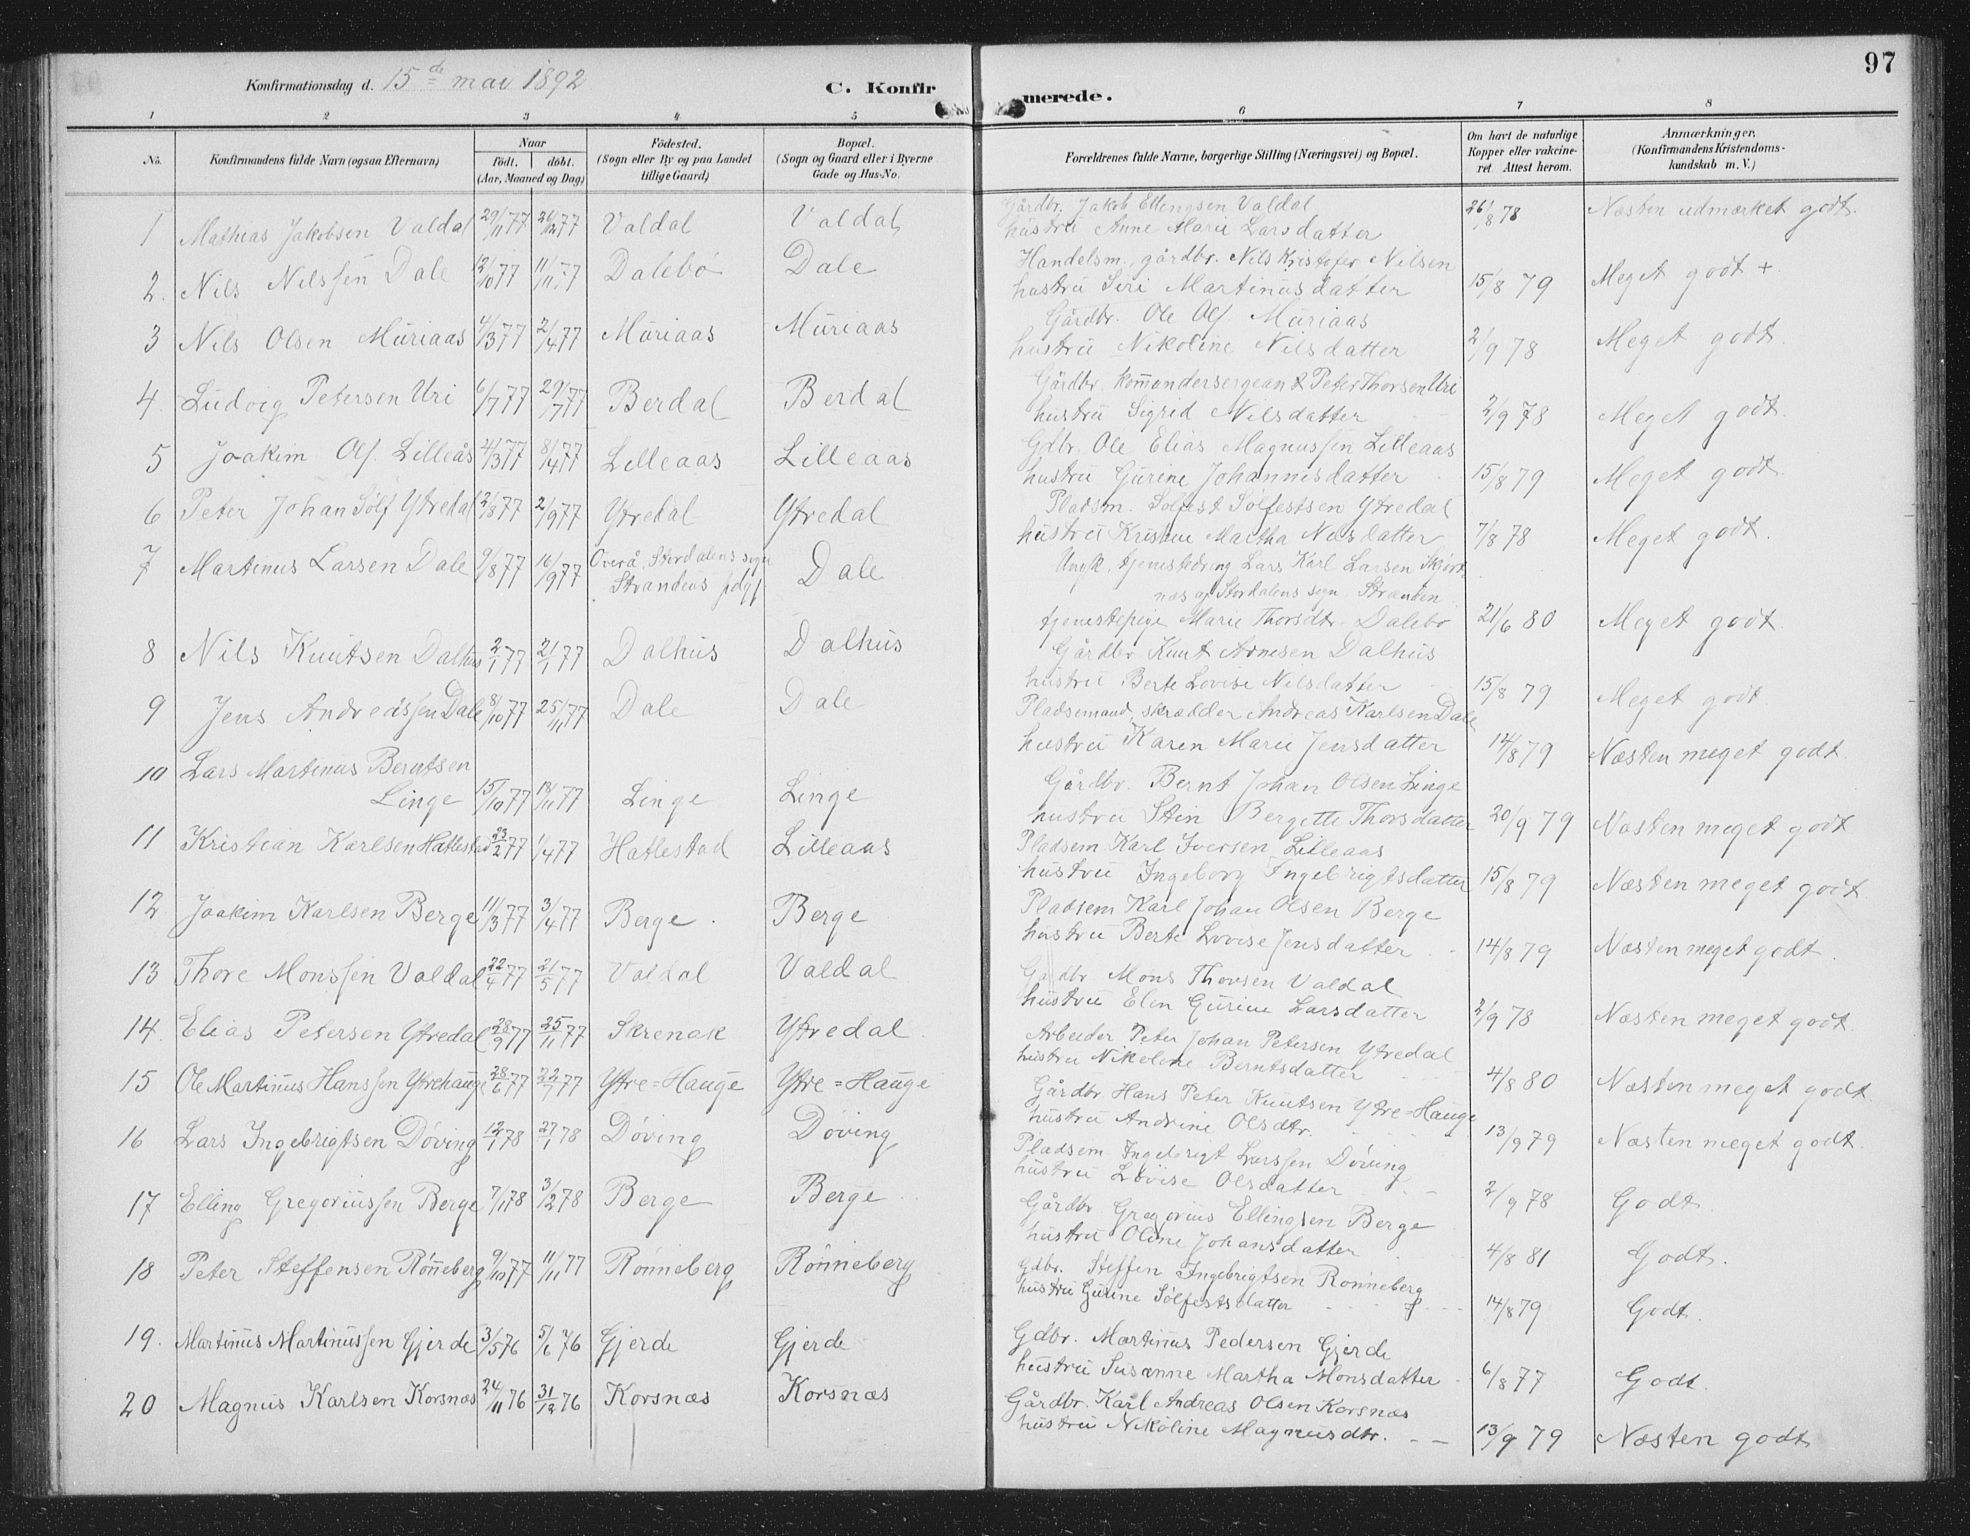 97
Konfirmationsdag d. 15de mai 1892
C. Konfirmerede.
1 2 3 4 5 6 7 8
No.
Konfirmandens fulde Navn (ogsaa Efternavn)
Naar
født. døbt.
(Aar, Maaned og Dag)
Fødested.
(Sogn eller By og paa Landet
tillige Gaard)
Bopæl.
(Sogn og Gaard eller i Byerne
Gade og Hus-No.
Forældrenes fulde Navne, borgerlige Stilling (Næringsvei) og Bopæl.
Om havt de naturlige
Kopper eller vakcine-
ret Attest herom.
Anmærkninger,
(Konfirmandens Kristendoms-
kundskab m. V.)
1 Mathias Jakobsen Valdal 29/11 77 26/12 77 Valdal Valdal Gårdbr. Jakob Ellingsen Valdal
hustru Anne Marie Larsdatter 26/8 78 Næsten udmærket godt.
2. Nils Nilssen Dale 12/10 77 11/11 77 Dalebø Dale Handelsm., gårdbr. Nils Kristofer Nilsen
hustru Siri Martinusdatter 15/8 79 Meget godt +
3 Nils Olsen Muriaas 4/3 77 2/4 77 Muriaas Muriaas Gårdbr. Ole Ols. Muriaas
hustru Nikoline Nilsdatter 2/9 78 Meget godt.
4. Ludvig Petersen Uri 6/7 77 29/7 77 Berdal Berdal Gårdbr. kommandersergeant Peter Thorsen Uri
hustru Sigrid Nilsdatter 2/9 78 Meget godt.
5 Joakim Ols. Lilleås 4/3 77 8/4 77 Lilleaas Lilleaas Gdbr. Ole Elias Magnussen Lilleaas
hustru Gurine Johannesdatter 15/8 79 Meget godt.
6 Peter Johan Solf Ytredal 2/8 77 2/9 77 Ytredal Ytredal Pladsm. Solfest Solfestsen Ytredal
hustru Kristine Martha Nilsdatter 7/8 78 Meget godt.
7 Martinus Larsen Dale 9/8 77 16/9 77 Overå, Stordalens sogn
Strandens pdgj. Dale Ungk., tjenestedreng Lars Karl Larsen Skjort-
næs af Stordalens sogn Stranden
tjenestepige Marie Thorsdtr. Dalebø 21/6 80 Meget godt.
8 Nils Knutsen Dalhus 2/1 77 21/1 77 Dalhus Dalhus Gårdbr. Knut Arnesen Dalhus
hustru Berte Lovise Nilsdatter 15/8 79 Meget godt
9 Jens Andreassen Dale 8/10 77 25/11 77 Dale Dale Pladsemand, skrædder Andreas Karlsen Dale
hustru Karen Marie Jensdatter 14/8 79 Næsten meget godt.
10 Lars Martinus Berntsen
Linge 15/10 77 18/11 77 Linge Linge Gårdbr. Bernt Johan Olsen Linge
hustru Stin Bergette Thorsdatter 20/9 79 Næsten meget godt
11 Kristian Karlsen Hatlestad 23/2 77 1/4 77 Hatlestad Lilleaas Pladsem Karl Iversen Lilleaas
hustru Ingeborg Ingebrigtsdatter 15/8 79 Næsten meget godt
12 Joakim Karlsen Berge 11/3 77 3/4 77 Berge. Berge Pladsem Karl Johan Olsen Berge
hustru Berte Lovise Jensdatter 14/8 79 Næsten meget godt.
13 Thore Monssen Valdal 22/4 77 21/5 77 Valdal Valdal Gårdbr. Mons Thorsen Valdal
hustru Elen Gurine Larsdatter 2/9 78 Næsten meget godt.
14. Elias Petersen Ytredal 28/9 77 25/11 77 Skrenak Ytredal Arbeider Peter Johan Petersen Ytredal
hustru Nikoline Berntsdatter 4/8 80 Næsten meget godt.
15 Ole Martinus Hanssen Ytrehauge 28/6 77 22/7 77 Ytre=Hauge Ytre=Hauge Gårdbr. Hans Peter Knutsen Ytre=Hauge
hustru Andrine Olsdtr. 13/9 79 Næsten meget godt.
16 Lars Ingebrigtsen Døving 12/1 78 27/1 78 Døving Døving Pladsem Ingebrigt Larssen Døving
hustru Lovise Olsdatter 2/9 78 Godt
17 Elling Gregoriussen Berge 7/11 78 3/2 78 Berge Berge Gårdbr Gregorius Ellingsen Berge
hustru Oline Johansdatter 4/8 81 Godt.
18 Peter Steffensen Rønneberg 9/10 77 11/11 77 Rønneberg Rønneberg Gdbr. Steffen Ingebrigtsen Rønneberg
hustru Gurine Solfestsdatter 14/8 79 Godt.
19. Martinus Martinussen Gjerde 3/5 76 5/6 76 Gjerde Gjerde Gdbr. Martinus Pedersen Gjerde
hustru Susanne Martha Monsdatter 6/8 77 Godt.
20 Magnus Karlsen Korsnæs 24/11 76 31/12 76 Korsnæs Korsnæs Gårdbr. Karl Andreas Olsen Korsnæs
hustru Nikoline Magnusdtr. 13/9 79 Næsten godt